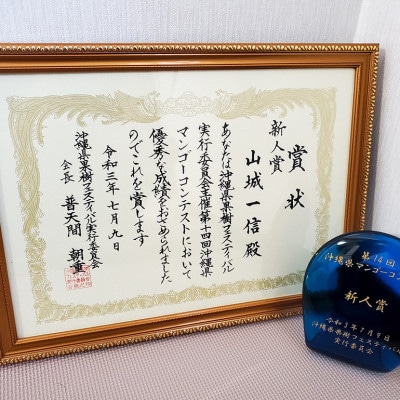 賞状
新人賞
山城一信殿
あなたは沖縄県果樹フェスティバル
実行委員会主催第十四回沖縄県
マンゴーコンテストにおいて
優秀な成績をおさめられました
のでこれを賞します
令和三年七月九日
沖縄県果樹フェスティバル実行委員会
会長 普天間朝重
第14回
沖縄県マンゴーコン
新人賞
令和3年7月9日
沖縄県果樹フェスティバル
実行委員会